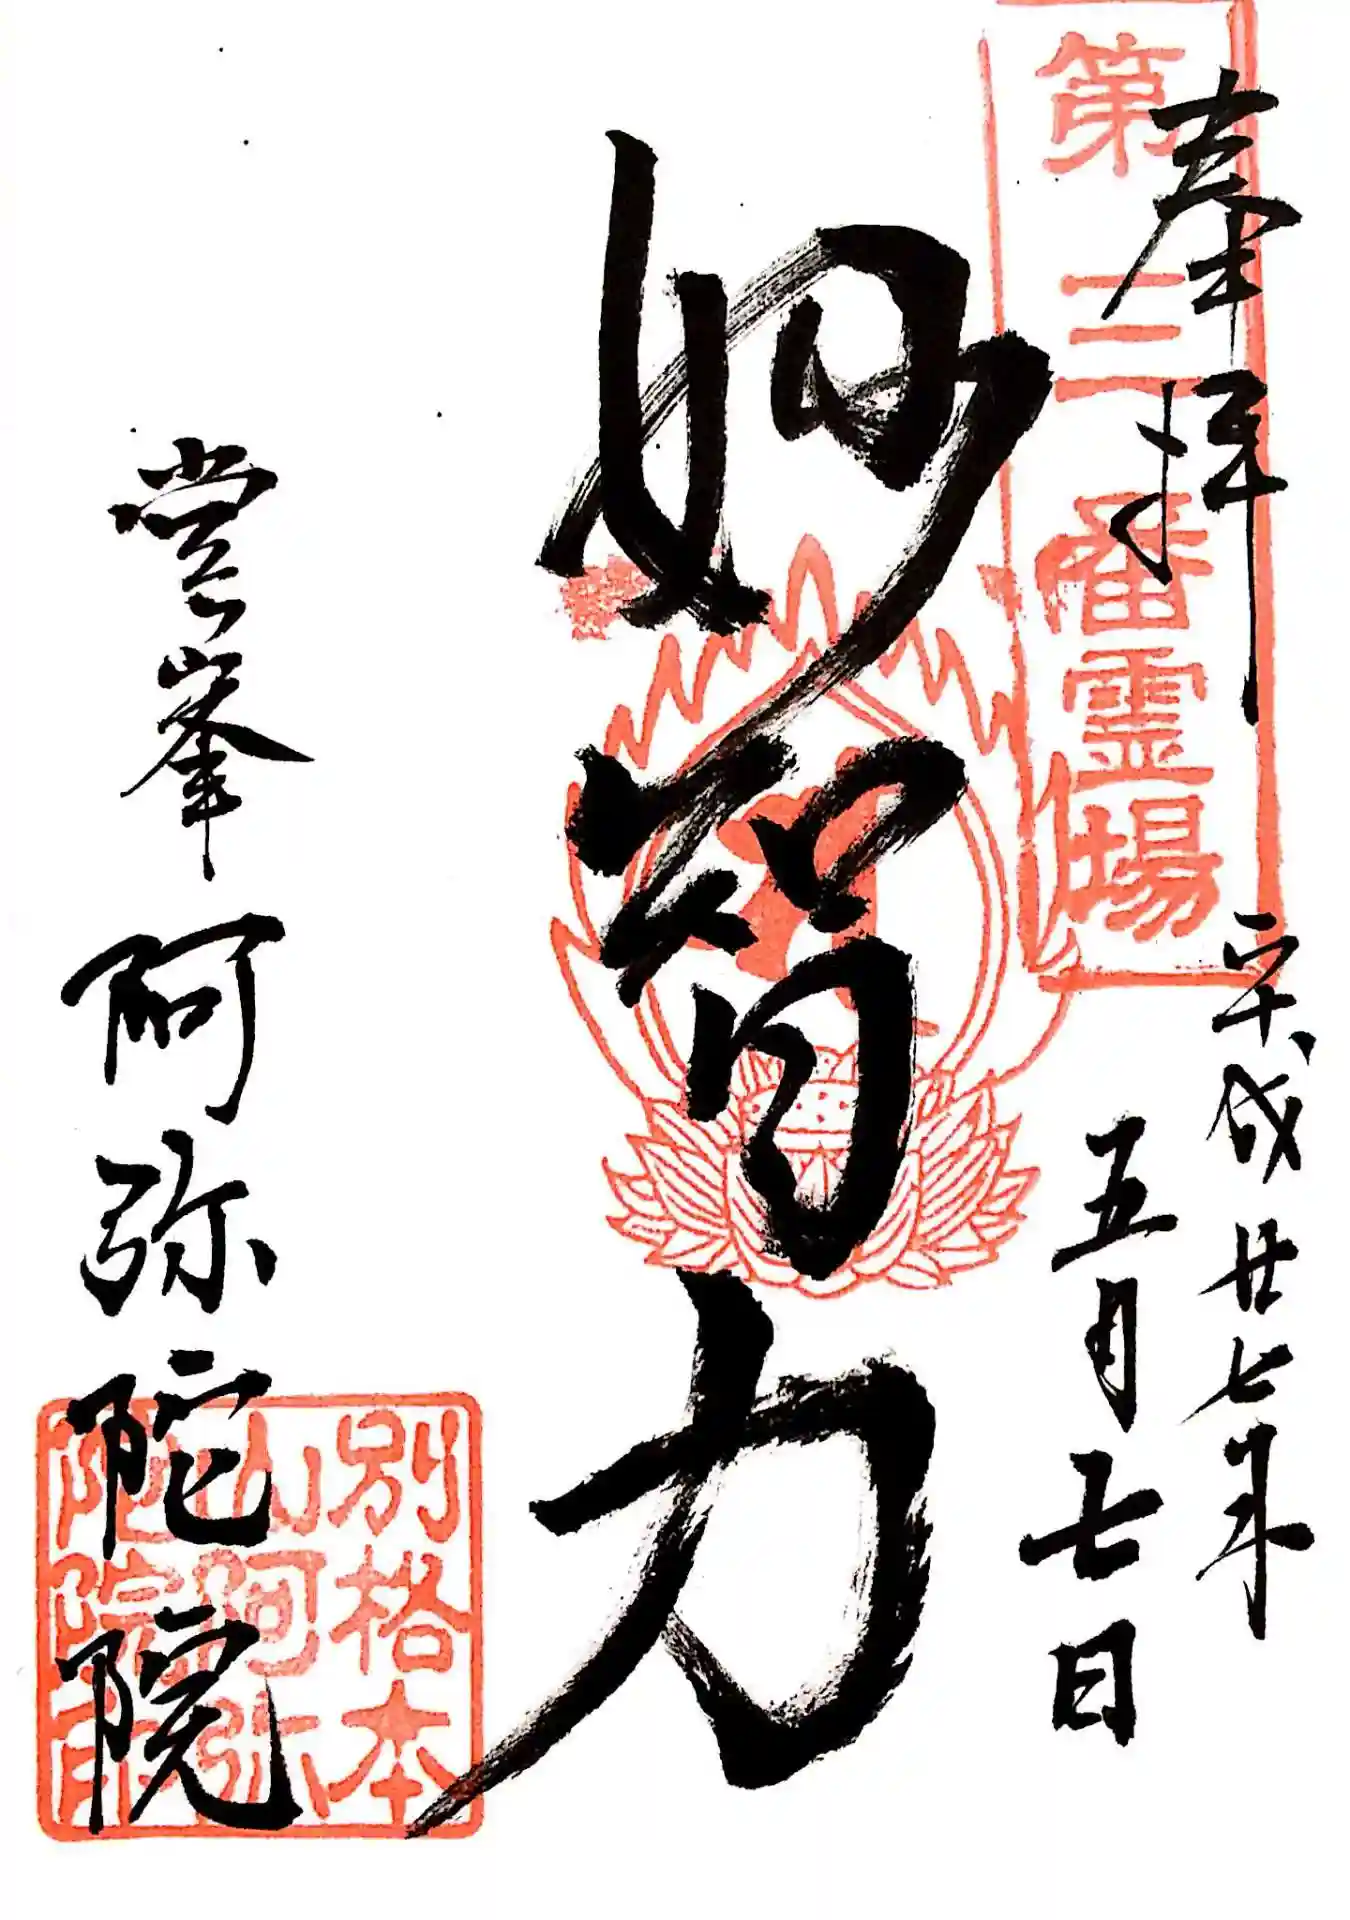 第三番霊場
奉拝
平成廿七年
五月七日
妙智力
堂峯 阿弥陀院
別格本
山阿弥
陀院印